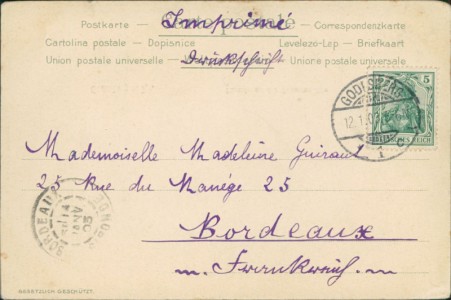 Postkarte — Imprimé — Correspondenzkarte
Cartolina postale — Dopisnice — Levelezö-Lap — Briefkaart
Union postale universelle — Drückschrift — Unione postale universale
GODESBERG
12.1.
1
5
DEUTSCHES REICH
Mademoiselle Madeleine Guiraut
25 Rue du Manége 25
Bordeaux
Frankreich
BORDEAUX
14
JANV
05
GESETZLICH GESCHÜTZT.